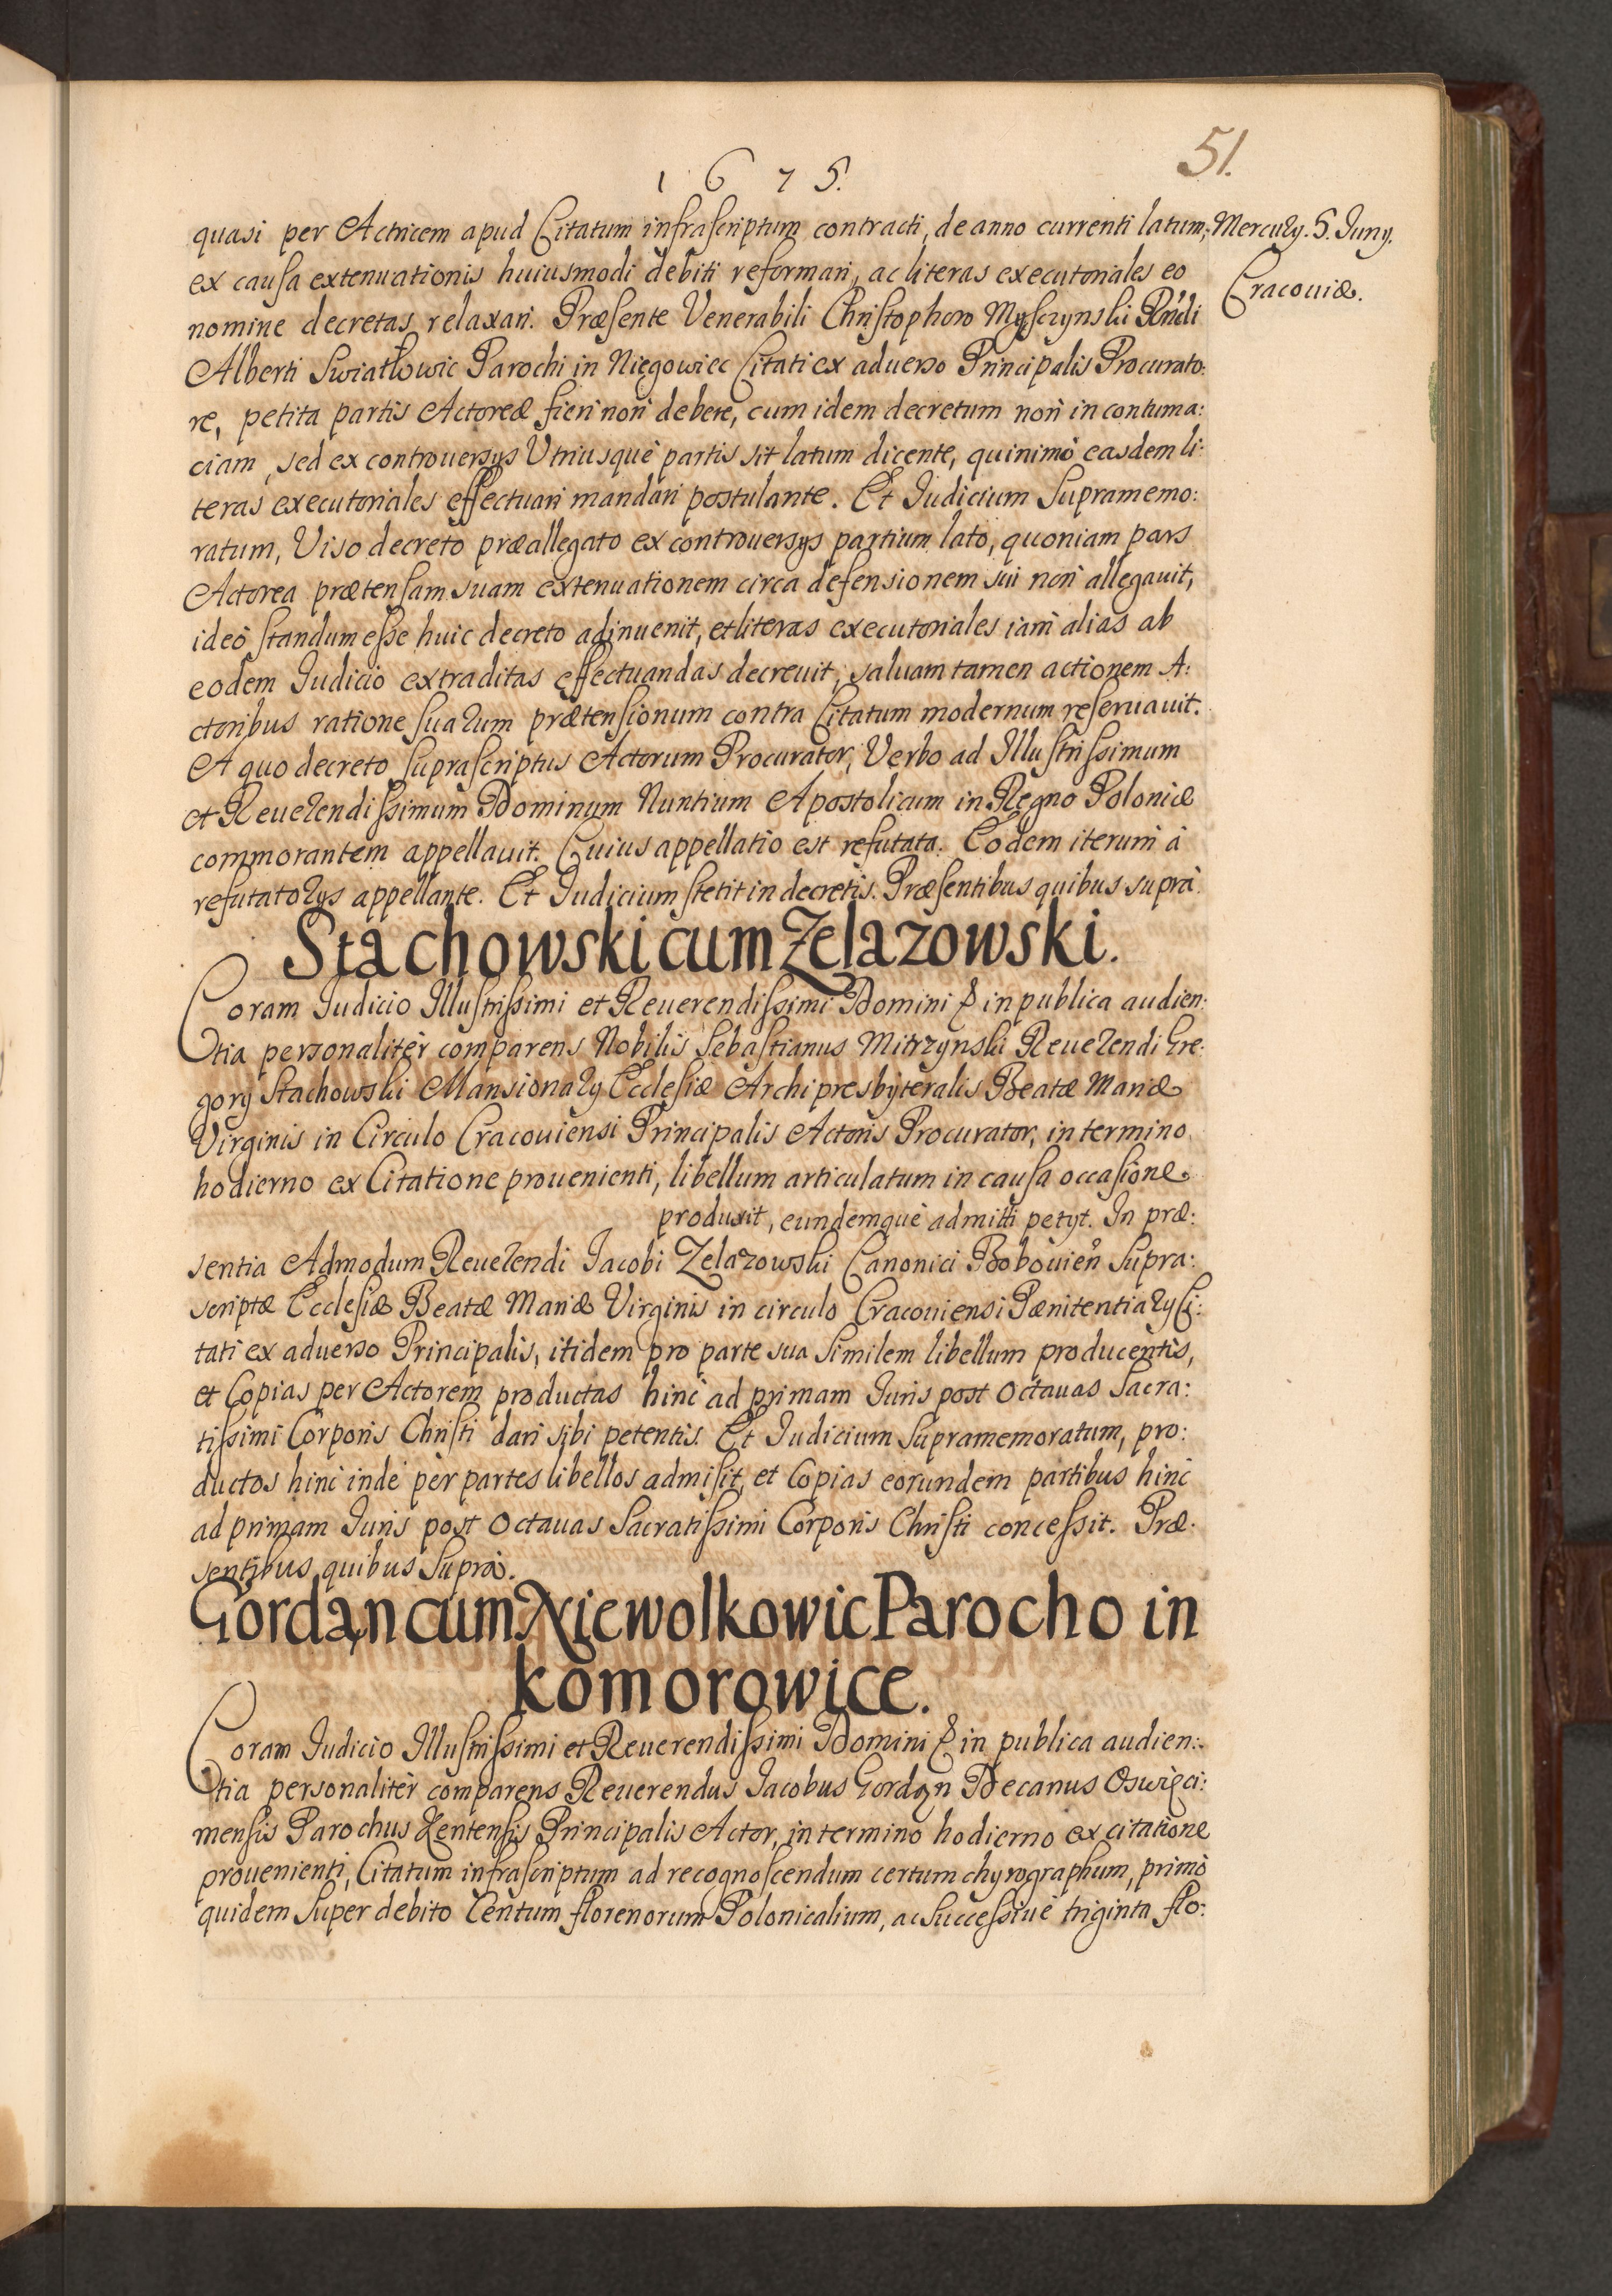 51.
1675.
quasi per Actricem apud Citatum infrascriptum contracti, de anno currenti latum,
Mercurÿ. 5. Junÿ.
Cracoviæ.
ex causa extenuationis huiusmodi debiti reformari, ac literas executoriales eo
nomine decretas relaxari. Præsente Venerabili Christophoro Myszynski Rndi
Alberti Swiatłowic Parochi in Niegowiec Citati ex adverso Principalis Procurato:
re, petita partis Actoreæ fieri non debere, cum idem decretum non in contuma:
ciam, sed ex controversÿs Utriusquè partis sit latum dicente, quinimò easdem li:
teras executoriales effectuari mandari postulante. Et Iudicium Supramemo:
ratum, Viso decretò præallegato ex controversÿs partium lato, quoniam pars
Actorea prætensam suam extenuationem circa defensionem sui non allegauit,
ideò standum esse huic decreto adinuenit, et literas executoriales iam alias ab
eodem Iudicio extraditas effectuandas decreuit, saluam tamen actionem A:
ctoribus ratione suarum prætensionum contra Citatum modernum reseruauit.
A quo decreto suprascriptus Actorum Procurator, Verbo ad Illustrissimum
et Reuerendissimum Dominum Nuntium Apostolicum in Regno Poloniæ
commorantem appellauit. Cuius appellatio est refutata. Eodem iterum à
refutatorÿs appellante. Et Iudicium stetit in decretis. Præsentibus quibus suprà.
Stachowski cum Zelazowski.
Coram Iudicio Illustrissimi et Reuerendissimi Domini & in publica audien:
tia personalitèr comparens Nobilis Sebastianus Mitrzynski Reuerendi Gre:
gorÿ Stachowski Mansionarÿ Ecclesiæ Archipresbÿteralis Beatæ Mariæ
Virginis in Circulo Cracouiensi Principalis Actoris Procurator, in termino
hodierno ex Citatione prouenienti, libellum articulatum in causa occasione
produxit, eundemquè admitti petÿt. In præ:
sentia Admodum Reuerendi Iacobi Zelazowski Canonici Bobouien Supra:
scriptæ Ecclesiæ Beatæ Mariæ Virginis in circulo Cracouiensi Pænitentiarÿ Ci:
tati ex aduerso Principalis, itidem pro parte sua Similem libellum producentis,
et Copias per Actorem productas hinc ad primam Iuris post Octauas Sacra:
tissimi Corporis Christi dari sibi petentis. Et Iudicium Supramemoratum, pro:
ductos hinc inde per partes libellos admisit, et Copias eorundem partibus hinc
ad primam Iuris post Octauas Sacratissimi Corporis Christi concessit. Præ:
sentibus quibus Suprà.
Gordąn cum Niewolkowic Parocho in
komorowice.
Coram Iudicio Illustrissimi et Reuerendissimi Domini & in publica audien:
tia personalitèr comparens Reuerendus Iacobus Gordąn Decanus Oswięci:
mensis Parochus Kentensis Principalis Actor, in termino hodierno ex citatione
prouenienti, Citatum infrascriptum ad recognoscendum certum chyrographum, primò
quidem Super debito Centum florenorum Polonicalium, ac Successiuè triginta flo: